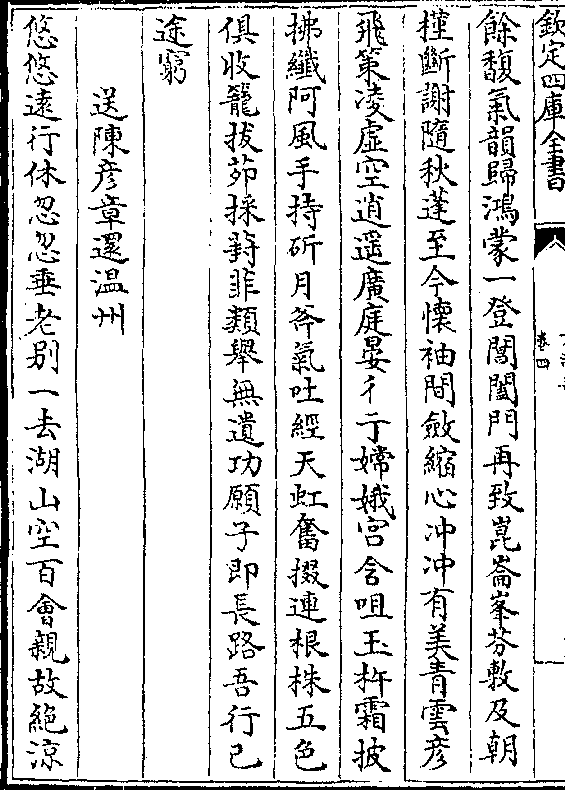 欽定四庫全書
卷四
餘馥氣韻歸鴻蒙一登閶闔門再致崑崙峯芬敷及朝
槿斷謝隨秋蓬至今懷袖間斂縮心冲冲有美青雲彦
飛策凌虚空逍遥廣庭晏彳亍嫦娥宫含咀玉杵霜披
拂纖阿風手持斫月斧氣吐經天虹奮掇連根株五色
俱收籠拔茆採葑菲類舉無遺功願子即長路吾行已
途窮
送陳彦章還温州
悠悠遠行休忽忽垂老别一去湖山空百會親故絶涼